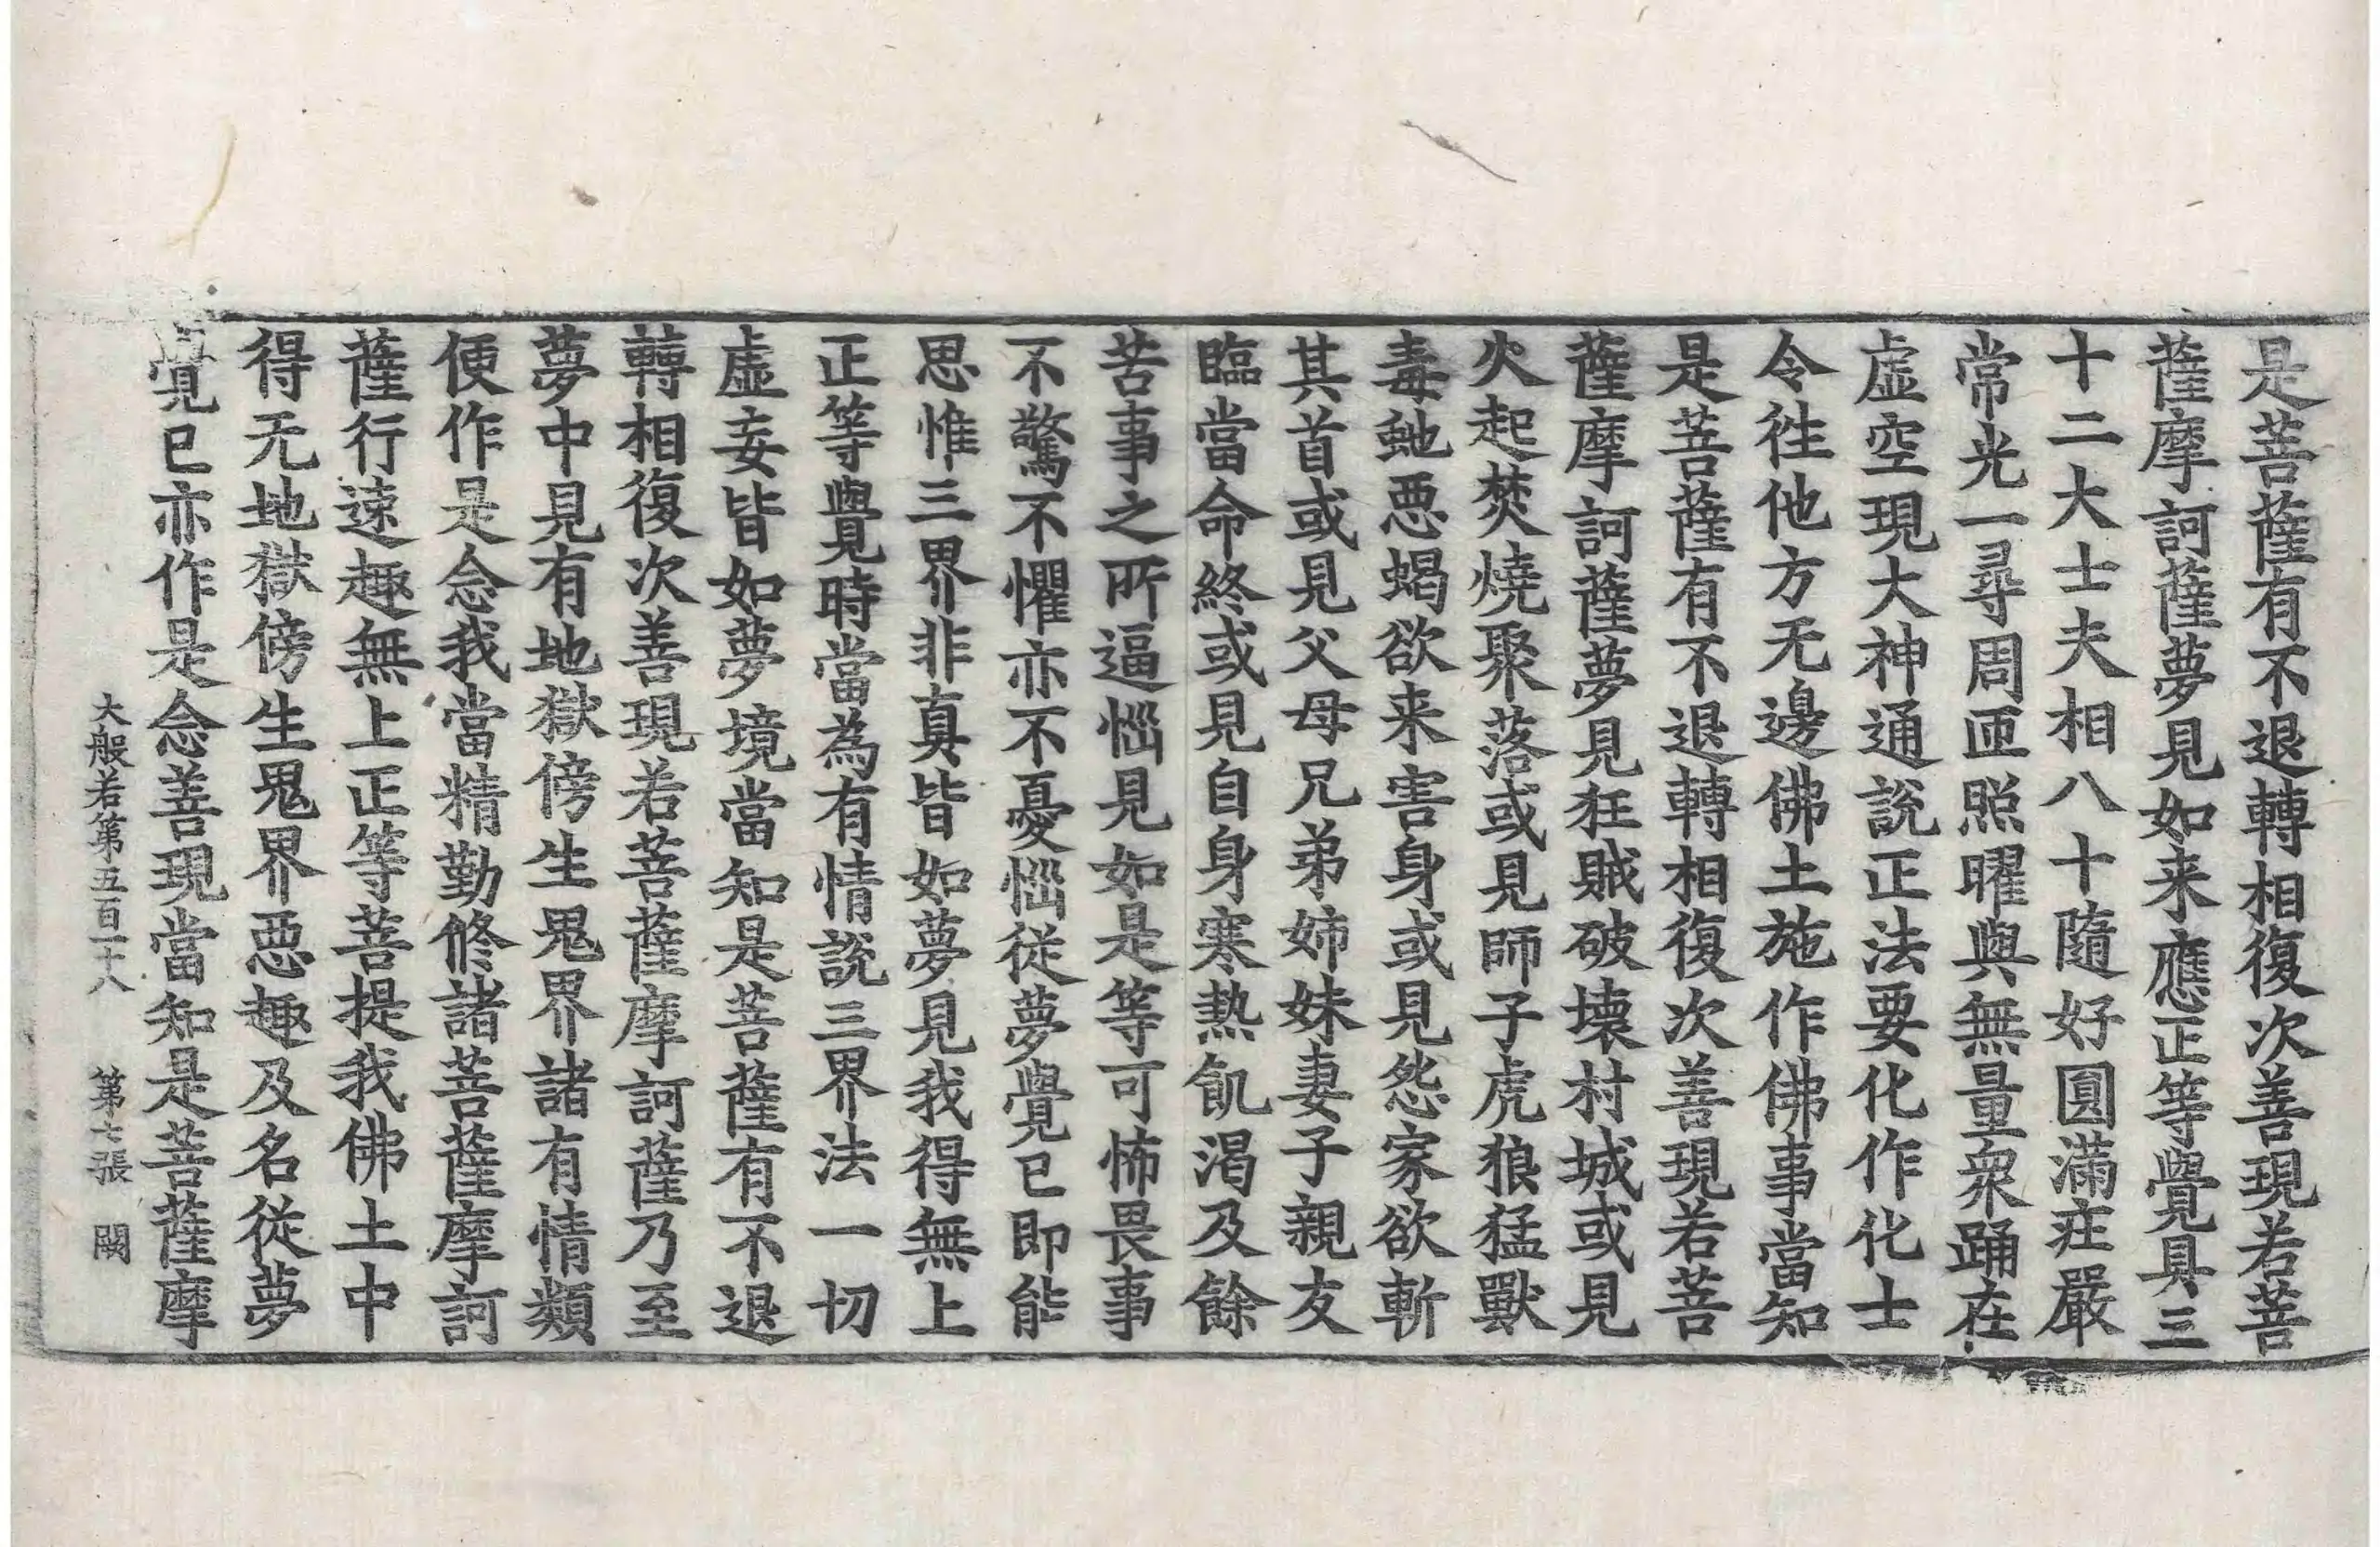 是菩薩有不退轉相復次善現若菩
薩摩訶薩夢見如来應正等覺具三
十二大士夫相八十隨好圓滿疘嚴
常光一尋周匝照曜與無量衆踊在
虛空現大神通說正法要化作化士
令徃他方无邊佛土施作佛事當知
是菩薩有不退轉相復次善現若菩
薩摩訶薩夢見狂賊破壞村城或見
火起焚燒聚落或見師子虎狼猛獸
毒虵惡蝎欲来害身或見怨家欲斬
其首或見父母兄弟姉妹妻子親友
臨當命終或見自身寒熱飢渴及餘
苦事之所逼惱見如是等可怖畏事
不驚不懼亦不憂惱從夢覺已即能
思惟三界非真皆如夢見我得無上
正等覺時當為有情說三界法一切
虛妄皆如夢境當知是菩薩有不退
轉相復次善現若菩薩摩訶薩乃至
夢中見有地獄傍生鬼界諸有情類
便作是念我當精勤修諸菩薩摩訶
薩行速趣無上正等菩提我佛土中
得无地獄傍生鬼界惡趣及名從夢
覺已亦作是念善現當知是菩薩摩
大般若第五百一十八 第七張 闕